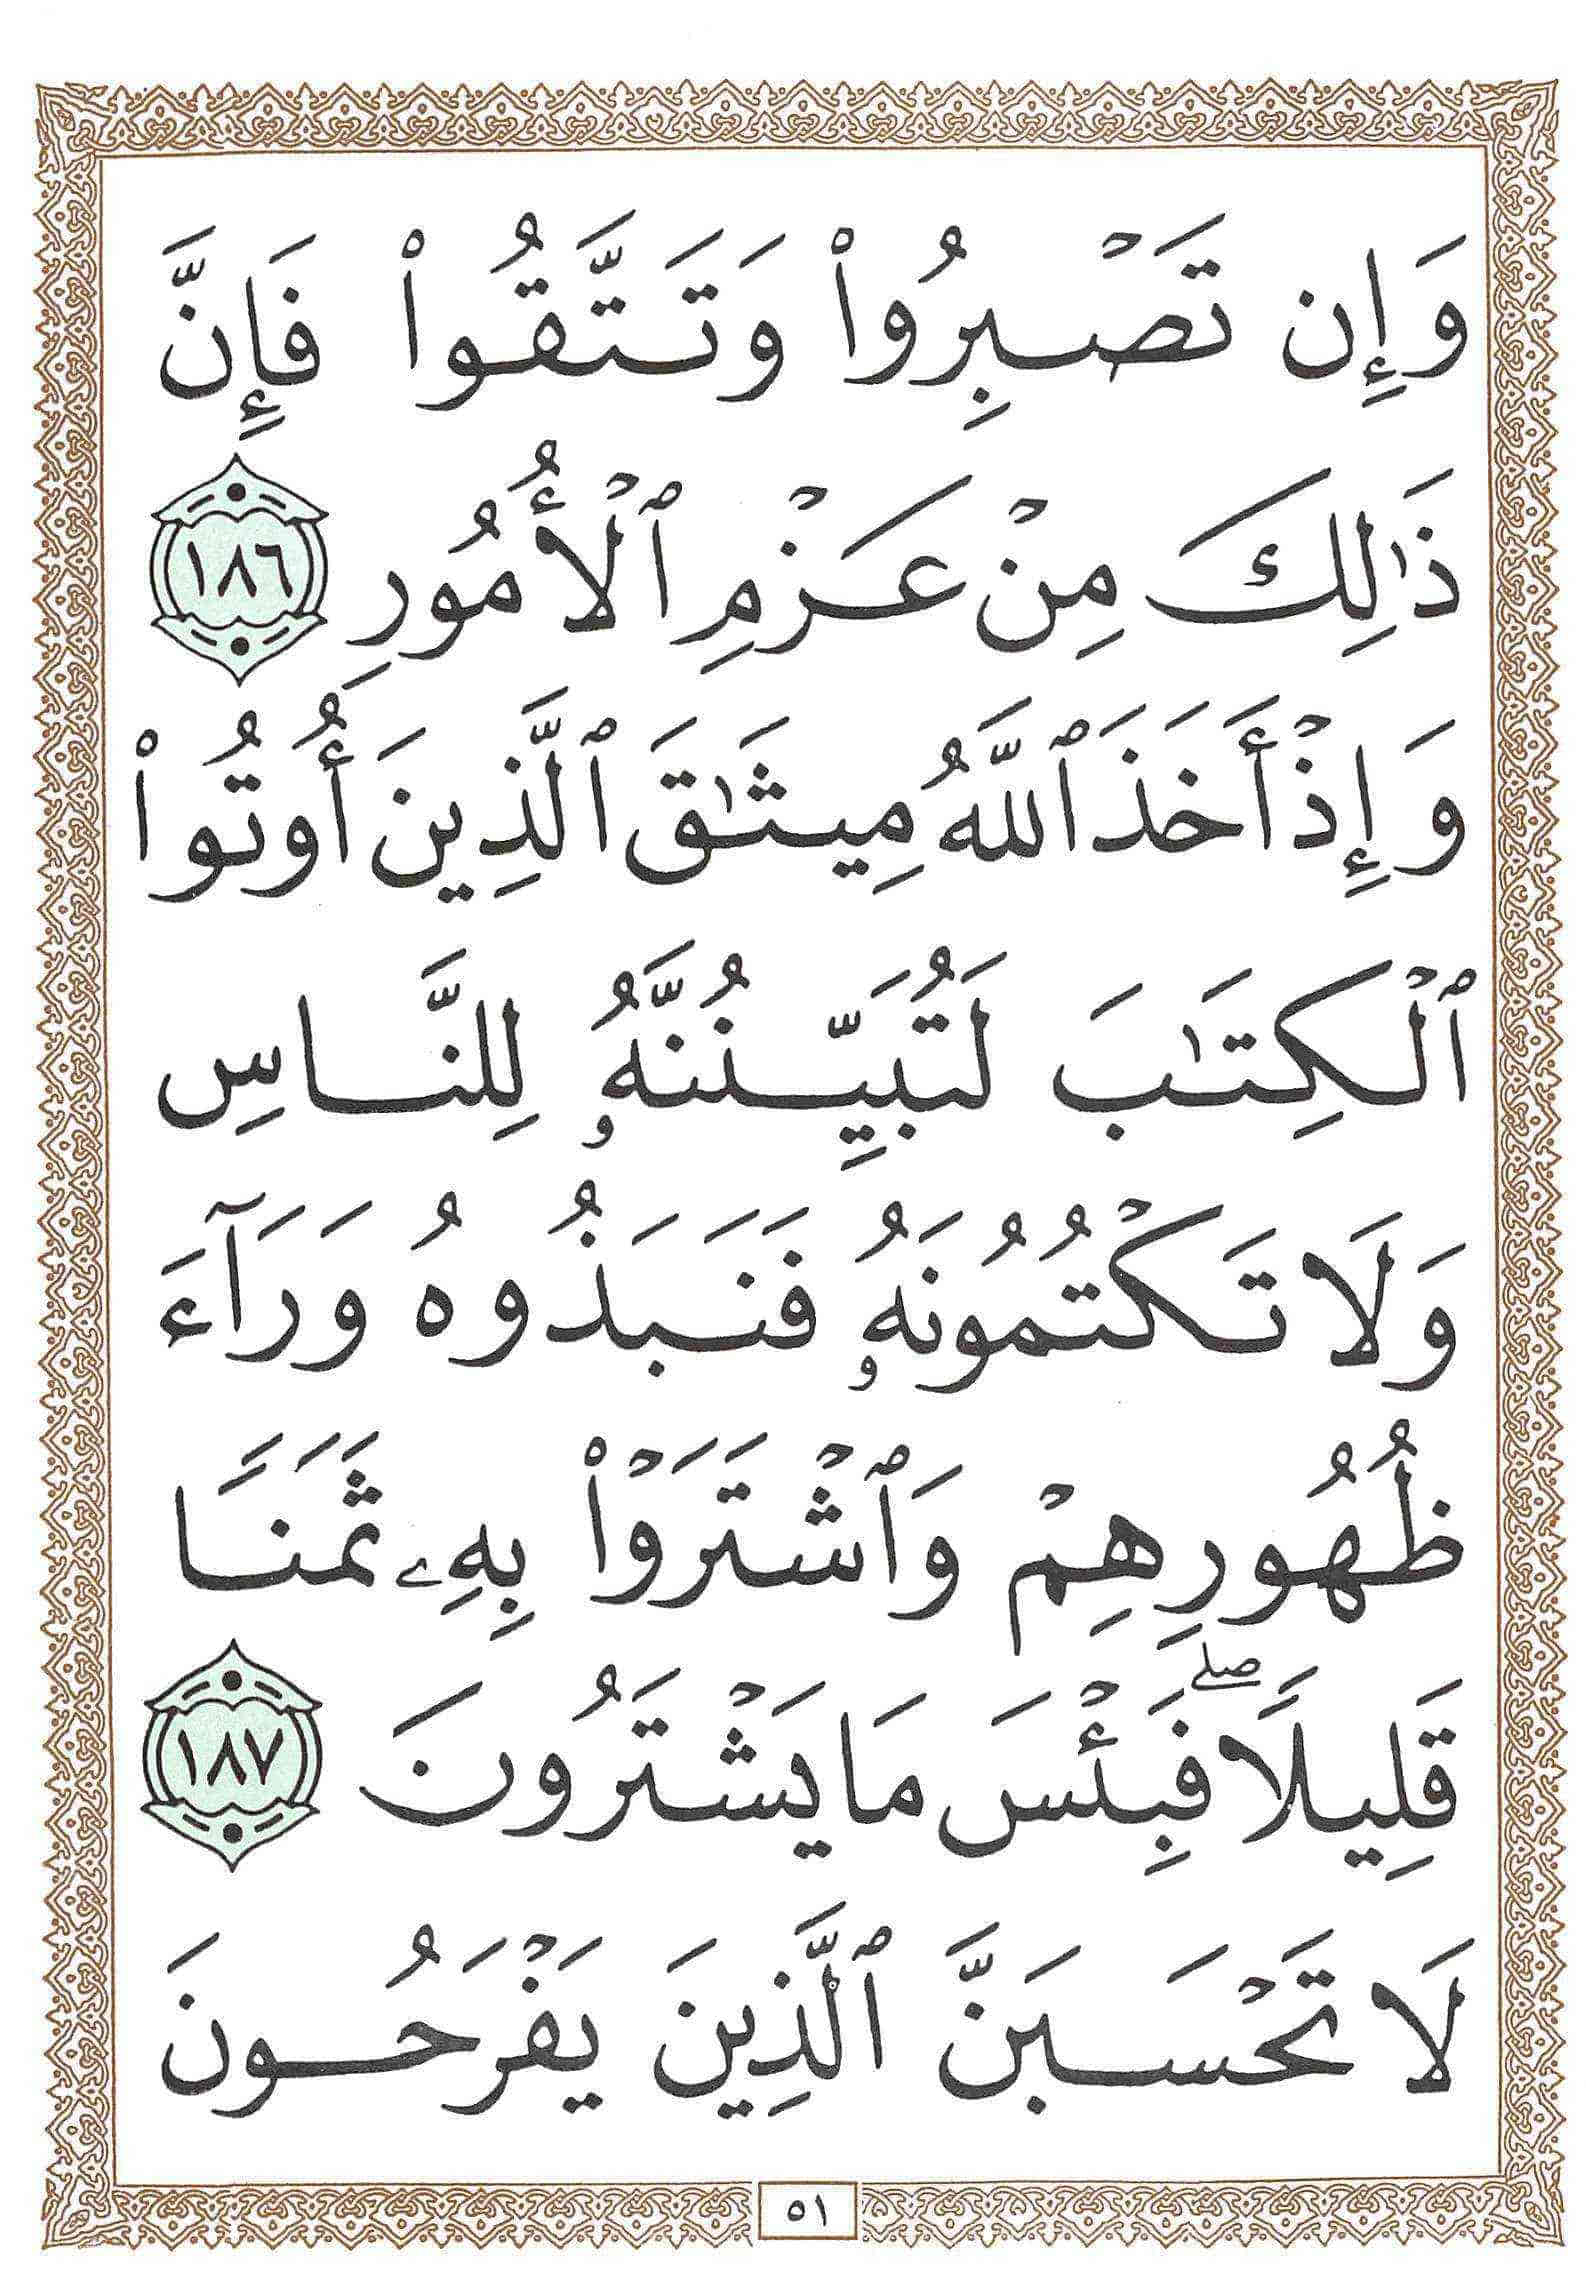 وَإِن تَصْبِرُوا۟ وَتَتَّقُوا۟ فَإِنَّ
ذَٰلِكَ مِنْ عَزْمِ ٱلْأُمُورِ ١٨٦
وَإِذْ أَخَذَ ٱللَّهُ مِيثَٰقَ ٱلَّذِينَ أُوتُوا۟
ٱلْكِتَٰبَ لَتُبَيِّنُنَّهُۥ لِلنَّاسِ
وَلَا تَكْتُمُونَهُۥ فَنَبَذُوهُ وَرَآءَ
ظُهُورِهِمْ وَٱشْتَرَوْا۟ بِهِۦ ثَمَنًا
قَلِيلًا ۖ فَبِئْسَ مَا يَشْتَرُونَ ١٨٧
لَا تَحْسَبَنَّ ٱلَّذِينَ يَفْرَحُونَ
٥١